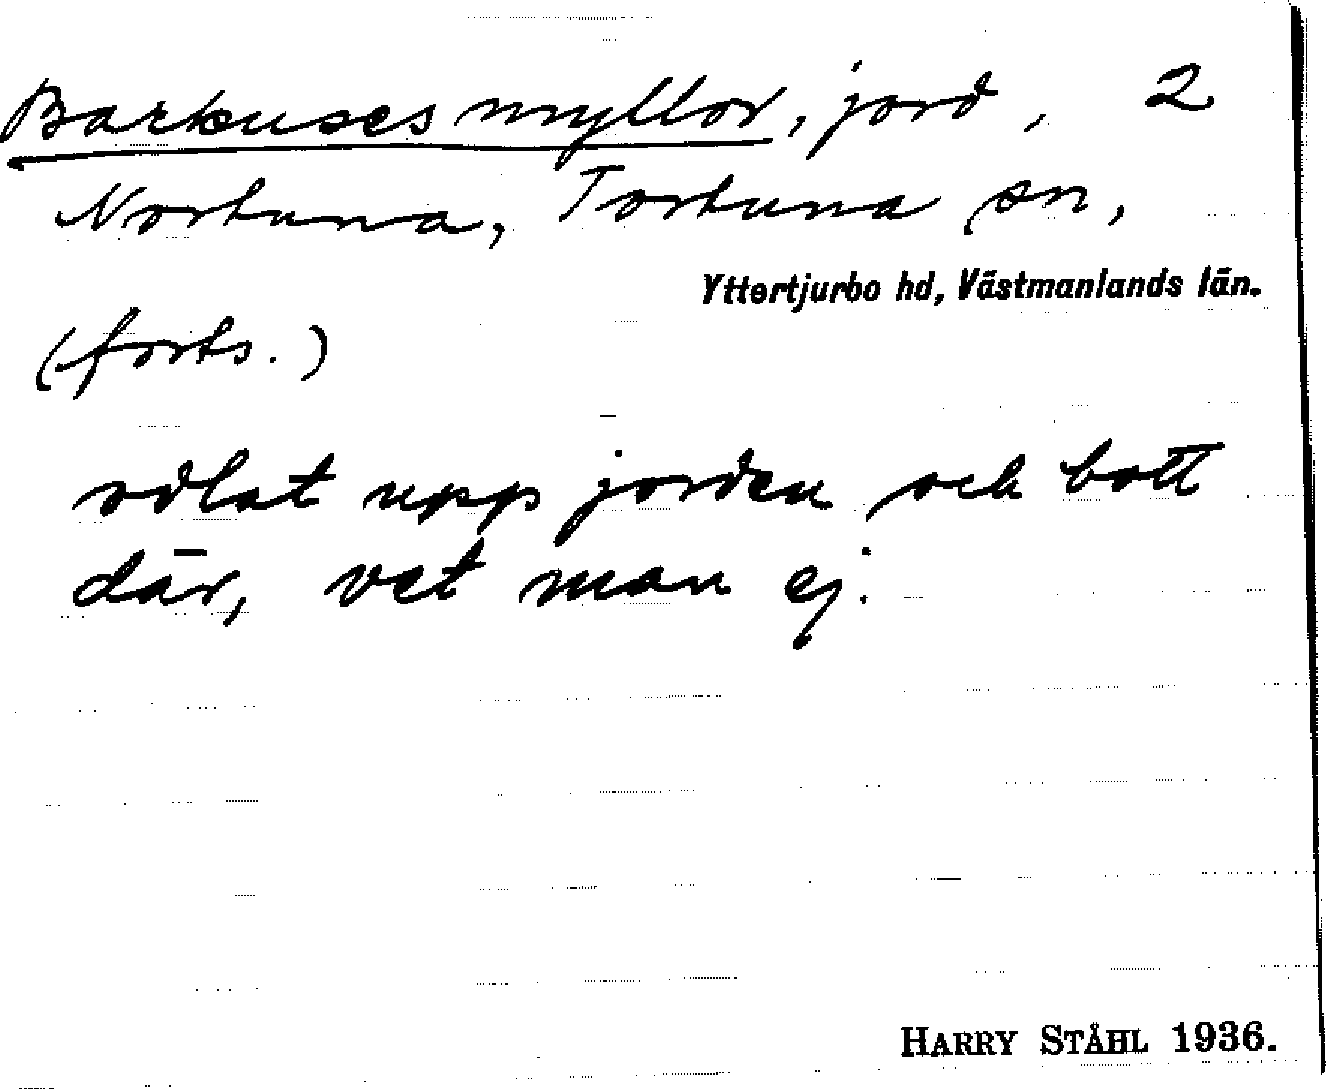 Barkusesmyllor, jord, 2
Nortuna, Tortuna sn,
Yttertjurbo hd, Västmanlands län.
(forts.)
odlat upp jorden och bott
där, vet man ej.
HARRY STÅHL 1936.